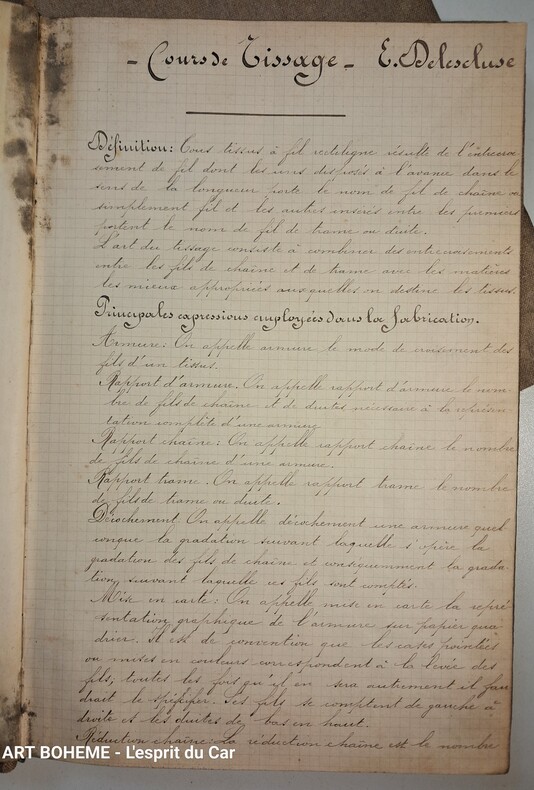 - Cours de Tissage - E. Delescluse
Définition: Tous tissus à fil rectiligne résulte de l'entrecroi
sement de fil dont les uns disposés à l'avance dans le
sens de la longueur porte le nom de fil de chaîne ou
simplement fil et les autres insérés entre les premiers
portent le nom de fil de trame ou duite.
L'art du tissage consiste à combiner des entrecroisements
entre les fils de chaîne et de trame avec les matières
les mieux appropriées auxquelles on destine les tissus.
Principales expressions employées dans la fabrication.
Armure: On appelle armure le mode de croisement des
fils d'un tissus.
Rapport d'armure. On appelle rapport d'armure le nom-
bre de fils de chaîne et de duites nécessaire à la représen-
tation complète d'une armure
Rapport chaîne: On appelle rapport chaîne le nombre
de fils de chaîne d'une armure.
Rapport trame. On appelle rapport trame le nombre
de fils de trame ou duite.
Décochement On appelle décochement une armure quel
conque la gradation suivant laquelle s'opère la
gradation des fils de chaîne et conséquemment la grada-
tion suivant laquelle ces fils sont comptés.
Mise en carte: On appelle mise en carte la repré
sentation graphique de l'armure sur papier qua
driller. Il est de convention que les cases pointées
ou mises en couleurs correspondent à la levée des
fils, toutes les fois qu'il en sera autrement il fau
drait le spécifier. Les fils se comptent de gauche à
droite et les duites de bas en haut.
Réduction chaîne: La réduction chaîne est le nombre
ART BOHEME - L'esprit du Car